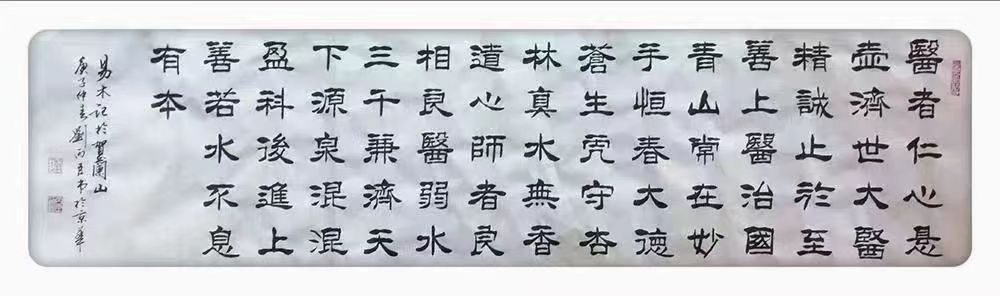 醫者仁心悬
壶濟世大醫
精誠止於至
善上醫治國
青山常在妙
手恒春大德
蒼生虎守杏
林真水無香
道心師者良
相良醫弱水
三千兼濟天
下源泉混混
盈科後進上
善若水不息
有本
易木記於賀蘭山
庚子仲春劉书於京華